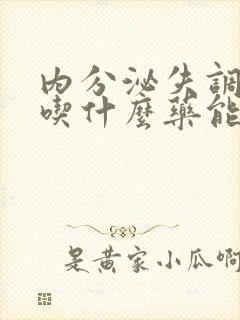 內分泌失調
喫什麼藥能
是黃家小瓜啊